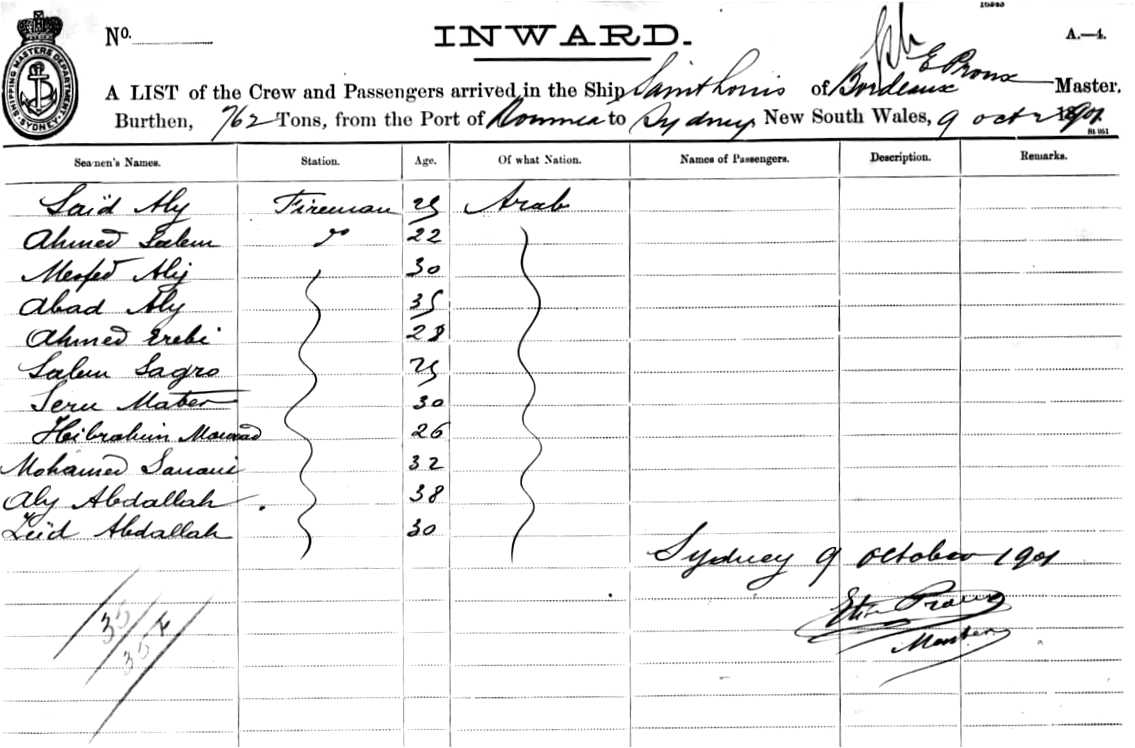 10333
SHIPPING MASTERS DEPARTMENT
SYDNEY
No.
INWARD.
A.—4.
E Proux
A LIST of the Crew and Passengers arrived in the Ship Saint Louis of Bordeaux Master,
Burthen, 762 Tons, from the Port of Noumea to Sydney New South Wales, 9 oct 1901
Seamen's Names. Station. Age. Of what Nation. Names of Passengers. Description. Remarks.
Saïd Aly Fireman 25 Arab
Ahmed Salem do 22
Mosfed Aly 30
Abad Aly 35
Ahmed Erebi 28
Salem Sagro 25
Seru Mater 30
Hibrahim 26
Mohamed Sanani 32
Aly Abdallah 38
Zeïd Abdallah 30
Sydney 9 October 1901
Master
35
35 F